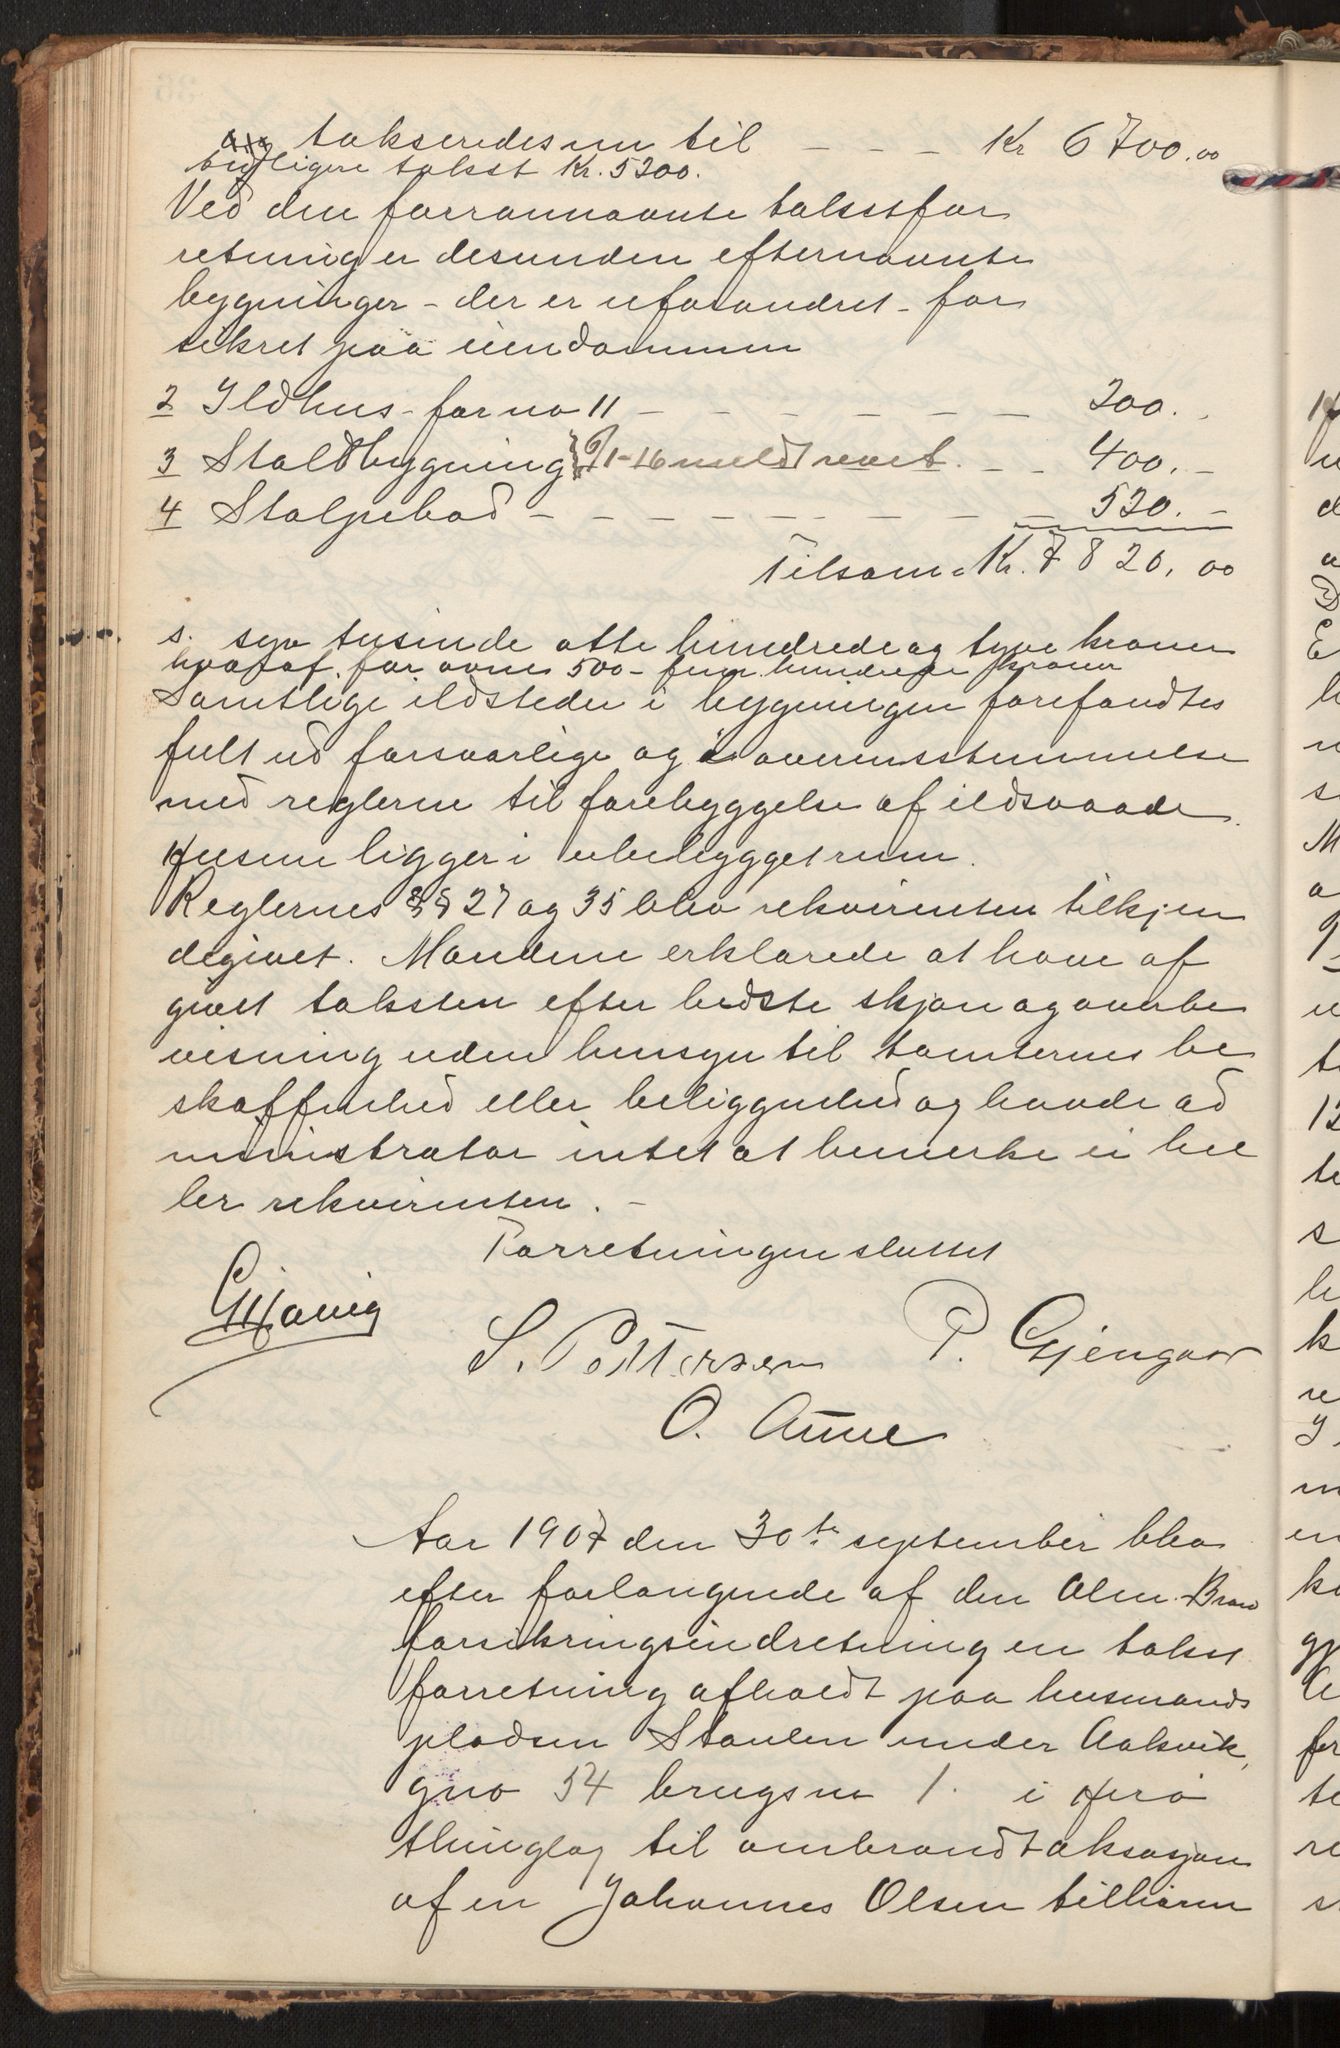 og takseredes nu til - - - Kr 6700.00
tidligere takst Kr. 5200.
Ved den forrannævnte takstfor
retning er desunden efternævnte
bygninger - der er uforandret - for
sikret paa eiendommen
2 Ildhus - før no 11 - - - - - - - 200. -
3 Staldbygning - - 400. -
4 Stolpebod - - - - - - - - - 520. -
Tilsam. Kr. 7820,00
s. syv tusinde otte hundrede og tyve kroner
hvoraf for ovne 500 - fem hundrede kroner
Samtlige ildsteder i bygningen forefandtes
fult ud forsvarlige og i overensstemmelse
med reglerne til forebyggelse af ildsvaade.
Husene ligger i ubebygget rum.
Reglernes §§ 27 og 35 blev rekvirenten tilkjen
degivet. Mændene erklærede at have af
givet taksten efter bedste skjøn og overbe
visning uden hensyn til tomternes be
skaffenhed eller beliggenhed og havde ad
ministrator intet at bemerke ei hel
ler rekvirenten. -
Forretningen sluttet
S. Pettersen P. Gjengaar
O. Aune
Aar 1907 den 30te september blev
efter forlangende af den Alm. Bran
forsikringsindretning en takst
forretning afholdt paa husmands
pladsen Staulen under Aakvik,
gno 54 brugsno 1. i
thinglag til ombrandtaksasjon
af en Johannes Olsen tilhøren